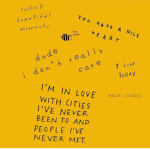 collect
beautiful
moments
YOU HAVE A NICE
HEART
dude
i don't really
care
I'M IN LOVE
WITH CITIES
I'VE NEVER
BEEN TO AND
PEOPLE I'VE
NEVER MET.